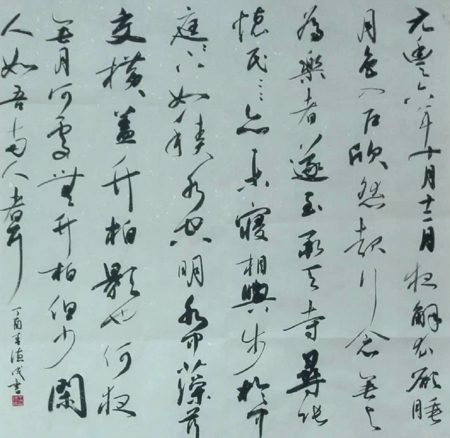 元豐六年十月十二日夜解衣欲睡
月色入户欣然起行念無与
為樂者遂至承天寺尋張
懷民〻〻亦未寢相與步於中
庭〻下如積水空明水中藻荇
交橫蓋竹柏影也何夜
無月何處無竹柏但少閑
人如吾兩人者耳
丁酉書